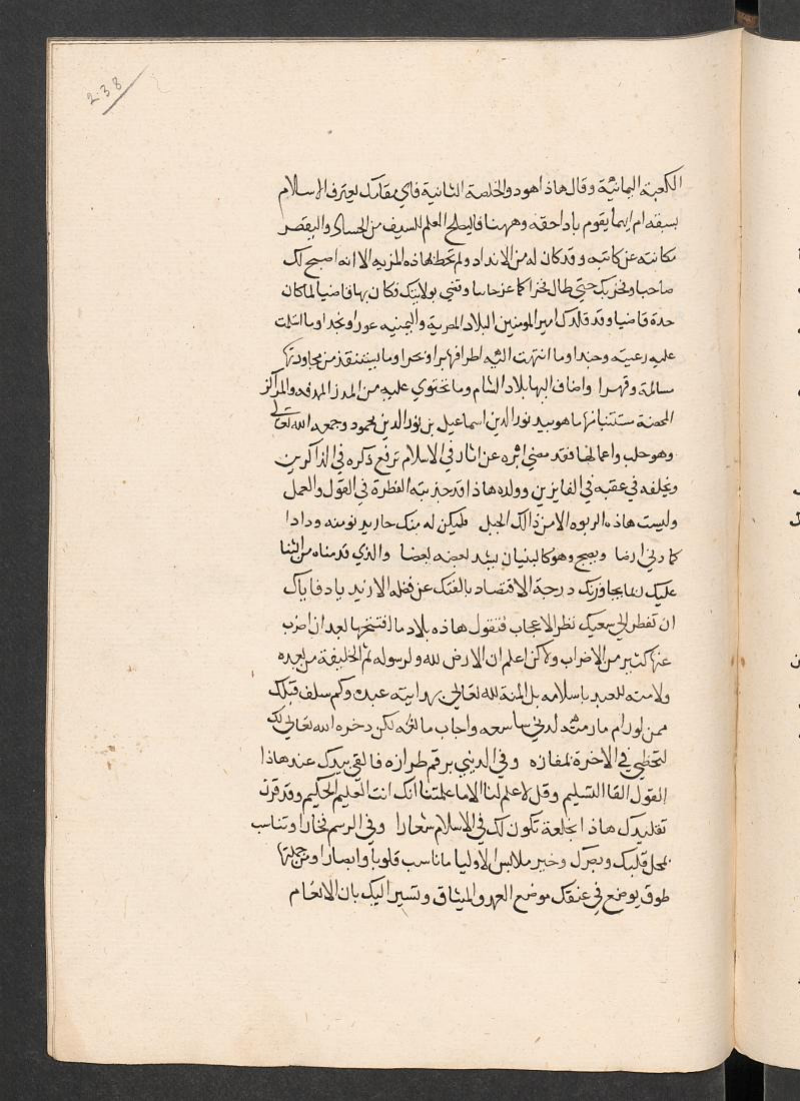 238
الكعبة اليمانية وقال هاذا هود والخلصة الثانية فاي مقامك يعترف الاسلام
بسبقه ام ايهما يقوم باداحقه وههنا فاليطلح القلم للسيف من الحساد واليقصر
مكانته عن كاتبه وقد كان له من الانداد ولم تحظ بهاذه المزية الا انه اصبح لك
صاحبا وفخر بك حتى طال فخرا كما عز جانبا وقضي بولايتك فكان بها قاضيا لما كان
حده قاضيا وقد قلدك امير المومنين البلاد المصرية واليمنيه غورا ونجدا وما اشتملت
عليه رعية وجندا وما انتهت اليه اطرافها برا وبحرا وما يستنقذ من مجاورتها
مسالمة وقهرا واضاف اليها بلاد الشام وما تحتوي عليه من المدن الممدنه والمراكز
المحصنة مستثنيا منها ما هو بيد نور الدين اسماعيل بن نور الدين محمود رحمه الله تعالى
وهو حلب واعمالها فقد مضي ابوه عن اثار في الاسلام ترفع ذكره في الذاكرين
وتخلفه في عقبه في الغابرين وولده هاذا قد هذبته الفطرة في القول والعمل
وليست هاذه الربوه الا من ذالك الجبل فليكن له منك جار يدنو منه ودادا
كما دني ارضا ويصبح وهو كالبنيان يشد بعضه بعضا والذي قدمناه من الثنا
عليك ربما تجاوز بك درجة الاقتصاد بالفتك عن فضله الازديادفاياك
ان تنظر الي سعيك نظر الاعجاب فتقول هاذه بلاد ما افتتحتها بعد ان اضرب
عنها كثير من الاضراب ولاكن اعلم ان الارض لله ولرسوله ثم لخليفة من بعده
ولامنه للعبد باسلامه بل المنة لله تعالى بهداية عبده وكم سلف قبلك
ممن لو رام ما رمته لدني شاسعه واجاب مانعه لكن دخره الله تعالى لك
لتحظي في الاخرة بمفازه وفي الدنيي برقم طرازه فالقي بيدك عند هاذا
القول القا التسليم وقل لا علم لنا الا ما علمتنا انك انت العليم الحكيم وقد قرن
تقليدك هاذا بخلعة تكون لك في الاسلام شعارا وفي الرسم فخارا وتناسب
محل قلبك وبصرك وخير ملابس الاوليا ما ناسب قلوبا وابصارا ومن جملتها
طوق يوضع في عنقك موضع العهد والميثاق وتشير اليك بان الانعام